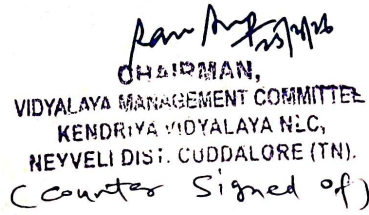 25/2/26
CHAIRMAN,
VIDYALAYA MANAGEMENT COMMITTEE
KENDRIYA VIDYALAYA NLC,
NEYVELI DIST. CUDDALORE (TN).
(Counter Signed of)